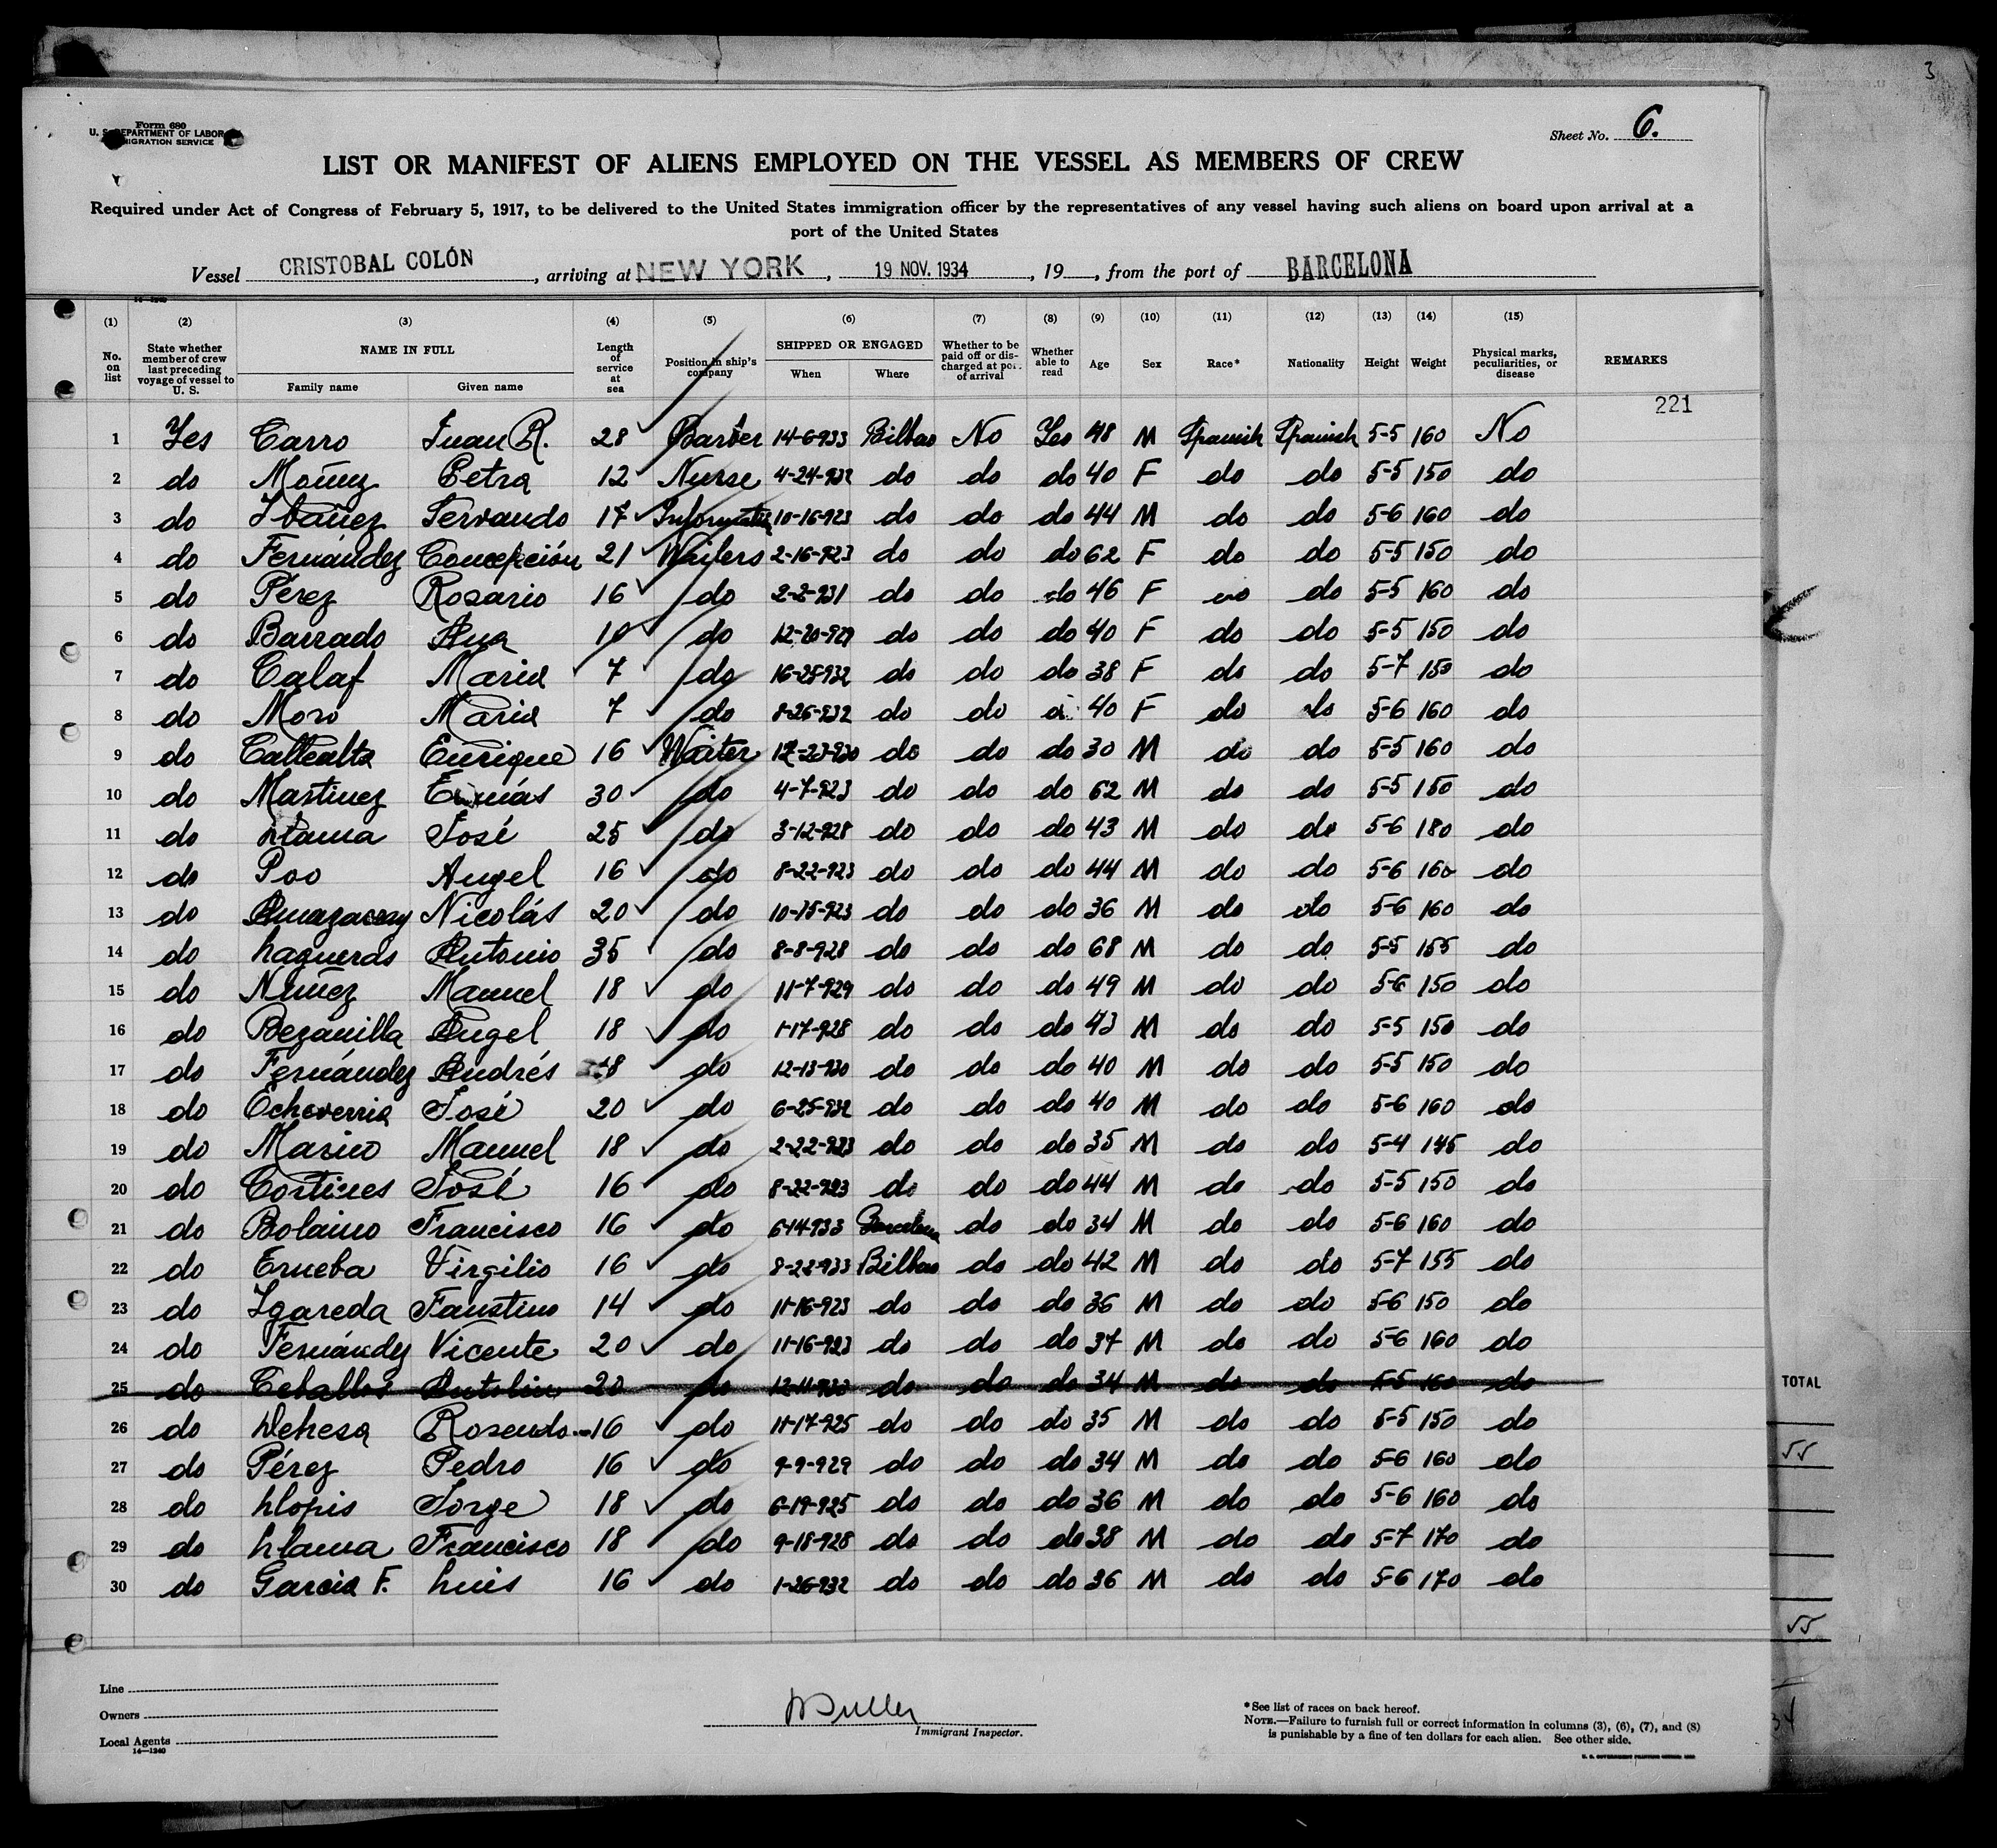 3
Form 680
U. S. DEPARTMENT OF LABOR
IMMIGRATION SERVICE
Sheet No. 6.
LIST OR MANIFEST OF ALIENS EMPLOYED ON THE VESSEL AS MEMBERS OF CREW
Required under Act of Congress of February 5, 1917, to be delivered to the United States immigration officer by the representatives of any vessel having such aliens on board upon arrival at a
port of the United States
Vessel CRISTOBAL COLÓN, arriving at NEW YORK, 19 NOV. 1934, 19 , from the port of BARCELONA
(1) (2) (3) (4) (5) (6) (7) (8) (9) (10) (11) (12) (13) (14) (15)
No. on list State whether member of crew last preceding voyage of vessel to U. S. NAME IN FULL Family name Given name Length of service at sea Position in ship's company SHIPPED OR ENGAGED When Where Whether to be paid off or discharged at port of arrival Whether able to read Age Sex Race* Nationality Height Weight Physical marks, peculiarities, or disease REMARKS
221
1 Yes Carro Juan R. 28 Barber 14-6-933 Bilbao No Yes 48 M Spanish Spanish 5-5 160 No
2 do Petra 12 Nurse 4-24-932 do do do 40 F do do 5-5 150 do
3 do Ibañez Servando 17 10-16-923 do do do 44 M do do 5-6 160 do
4 do Fernández Concepción 21 Waiters 2-16-923 do do do 62 F do do 5-5 150 do
5 do Pérez Rosario 16 do 2-2-931 do do do 46 F do do 5-5 160 do
6 do Barrado Ana 10 do 12-20-929 do do do 40 F do do 5-5 150 do
7 do Calaf Maria 7 do 16-25-932 do do do 38 F do do 5-7 150 do
8 do Moro Maria 7 do 8-26-932 do do do 40 F do do 5-6 160 do
9 do Enrique 16 Waiter 12-23-930 do do do 30 M do do 5-5 160 do
10 do Martinez 30 do 4-7-923 do do do 62 M do do 5-5 150 do
11 do Llama José 25 do 3-12-928 do do do 43 M do do 5-6 180 do
12 do Poo Angel 16 do 8-22-923 do do do 44 M do do 5-6 160 do
13 do Nicolás 20 do 10-15-923 do do do 36 M do do 5-6 160 do
14 do Lagueras Antonio 35 do 8-8-928 do do do 68 M do do 5-5 155 do
15 do Núñez Manuel 18 do 11-7-929 do do do 49 M do do 5-6 150 do
16 do Bezanilla Angel 18 do 1-17-928 do do do 43 M do do 5-5 150 do
17 do Fernández Andrés 18 do 12-13-930 do do do 40 M do do 5-5 150 do
18 do Echeverria José 20 do 6-25-932 do do do 40 M do do 5-6 160 do
19 do Marino Manuel 18 do 2-22-923 do do do 35 M do do 5-4 145 do
20 do Cortines José 16 do 8-22-923 do do do 44 M do do 5-5 150 do
21 do Bolaino Francisco 16 do 6-14-933 Barcelona do do 34 M do do 5-6 160 do
22 do Erueba Virgilio 16 do 8-22-933 Bilbao do do 42 M do do 5-7 155 do
23 do Igareda Faustino 14 do 11-16-923 do do do 36 M do do 5-6 150 do
24 do Fernández Vicente 20 do 11-16-923 do do do 37 M do do 5-6 160 do
25 do Ceballos Antolin 20 do do do do 34 M do do 5-5 160 do
26 do Dehesa Rosendo 16 do 11-17-925 do do do 35 M do do 5-5 150 do
27 do Pérez Pedro 16 do 9-9-929 do do do 34 M do do 5-6 160 do
28 do Llopis Jorge 18 do 6-19-925 do do do 36 M do do 5-6 160 do
29 do Llama Francisco 18 do 9-18-928 do do do 38 M do do 5-7 170 do
30 do Garcia F. Luis 16 do 1-26-932 do do do 36 M do do 5-6 170 do
TOTAL
55
55
Line
Owners
Local Agents
14—1240
Immigrant Inspector.
*See list of races on back hereof.
NOTE.—Failure to furnish full or correct information in columns (3), (6), (7), and (8)
is punishable by a fine of ten dollars for each alien. See other side.